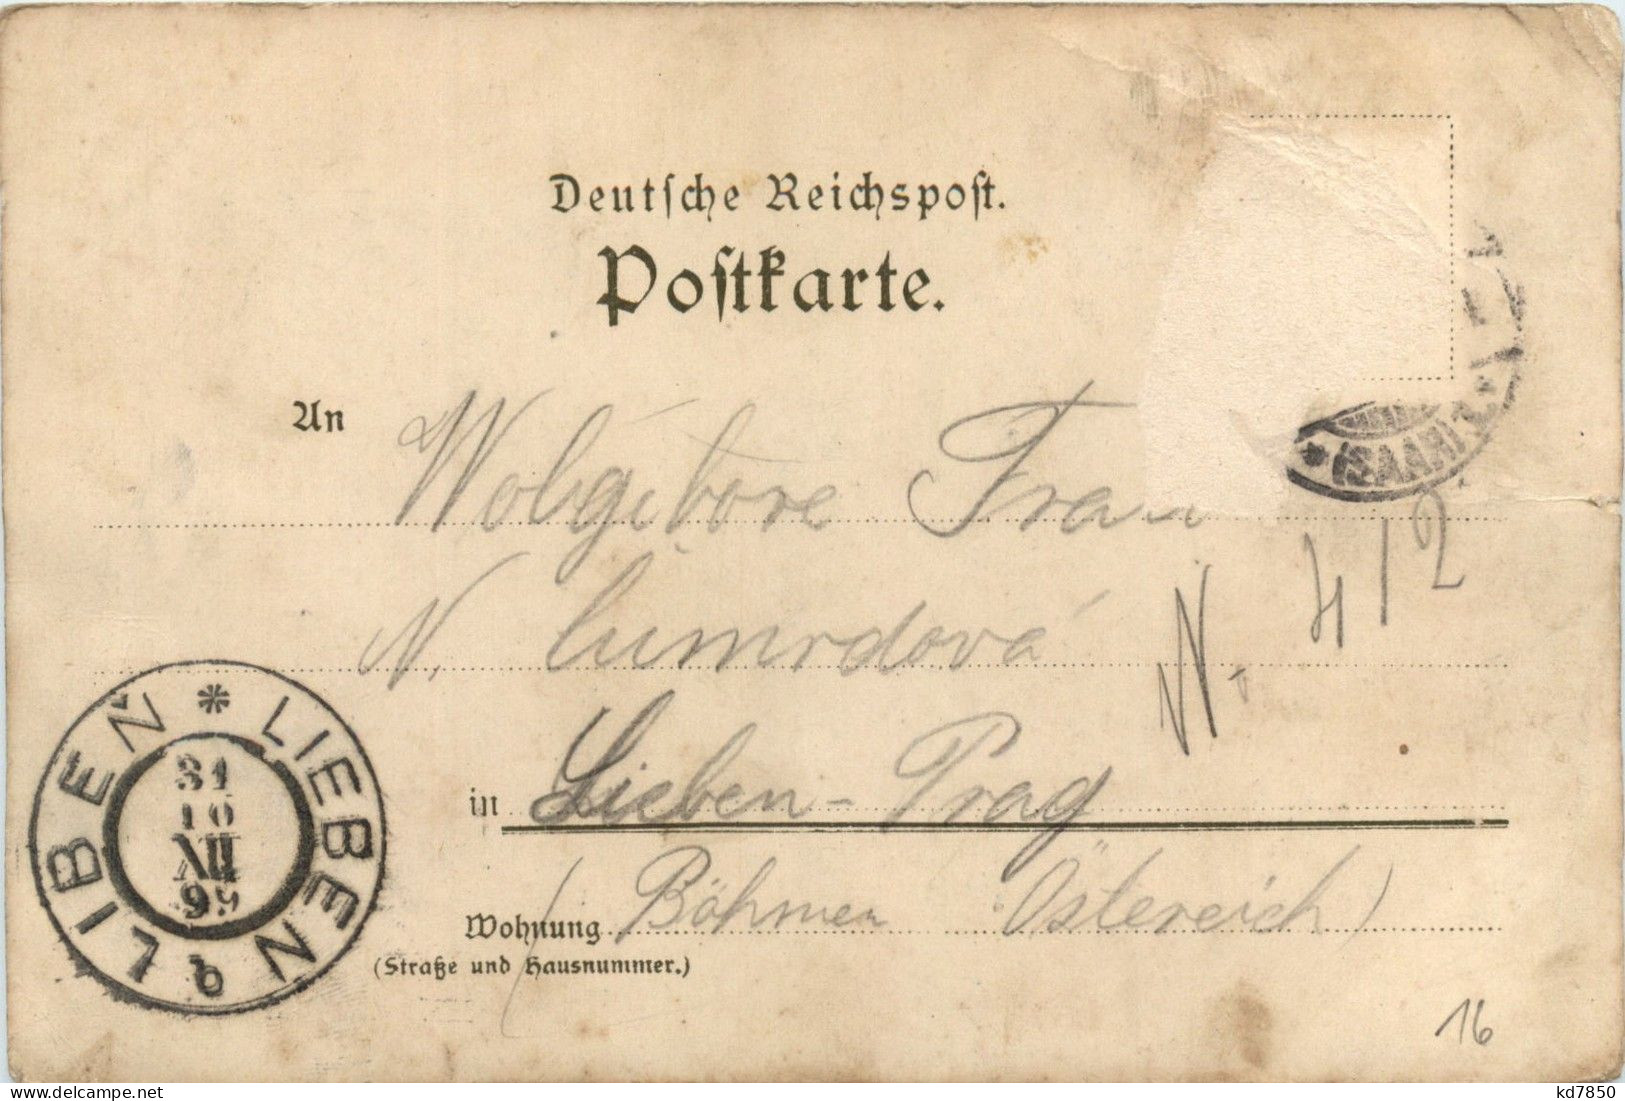 Deutſche Reichspoſt.
Poſtkarte.
An Wolgibore Frau
N. Cumrdová
N. 412
in Lieben-Prag
Wohnung (Böhmen Östereich)
(Straße und Hausnummer.)
LIEBEN * LIBEŇ
b
31
10
XII
99
* (SAAR)
16
kd7850